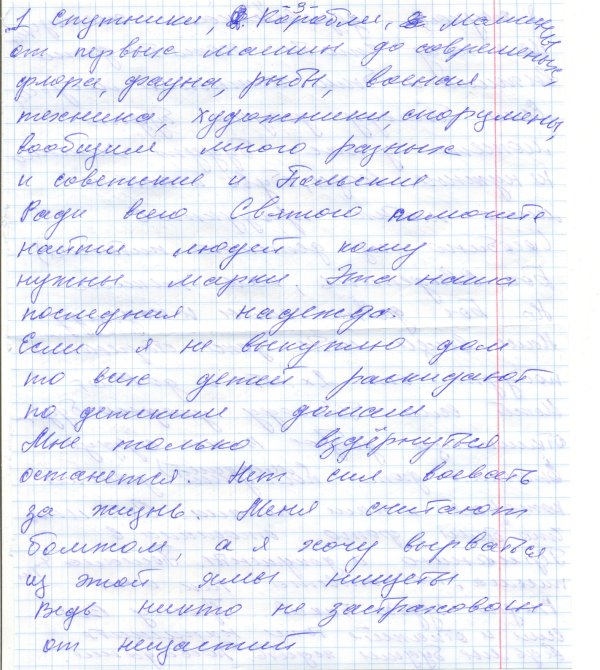 -3-
1 Спутники, Корабли, машины
от первых машин до современых,
флора, фауна, рыбы, военая
техника, художники, спорцмены,
вообщем много разных
и советские и Польские
Ради всего Святого помогите
найти людей кому
нужны марки. Эта наша
последния надежда.
Если я не выкуплю дом
то всех детей раскидают
по детским домам
Мне только вздёрнуться
останется. Нет сил воевать
за жизнь. Меня считают
бомжом, а я хочу вырваться
из этой ямы нищеты
Ведь никто не застрахован
от нещастий